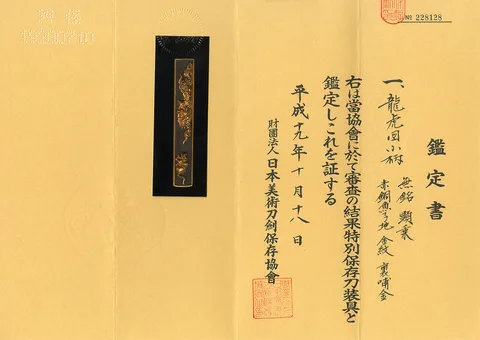 № 228128
鑑定書
一、龍虎図小柄 無銘 顕乗
赤銅魚子地 金紋 裏哺金
右は當協會に於て審査の結果特別保存刀装具と
鑑定しこれを証する
平成十九年十月十八日
財團法人 日本美術刀劍保存協會